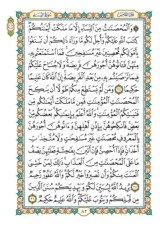 وَٱلْمُحْصَنَٰتُ مِنَ ٱلنِّسَآءِ إِلَّا مَا مَلَكَتْ أَيْمَٰنُكُمْ
كِتَٰبَ ٱللَّهِ عَلَيْكُمْ وَأُحِلَّ لَكُم مَّا وَرَآءَ ذَٰلِكُمْ أَن تَبْتَغُوا۟
بِأَمْوَٰلِكُم مُّحْصِنِينَ غَيْرَ مُسَٰفِحِينَ فَمَا ٱسْتَمْتَعْتُم بِهِۦ
مِنْهُنَّ فَـَٔاتُوهُنَّ أُجُورَهُنَّ فَرِيضَةً وَلَا جُنَاحَ عَلَيْكُمْ
فِيمَا تَرَٰضَيْتُم بِهِۦ مِنۢ بَعْدِ ٱلْفَرِيضَةِ إِنَّ ٱللَّهَ كَانَ عَلِيمًا
حَكِيمًا وَمَن لَّمْ يَسْتَطِعْ مِنكُمْ طَوْلًا أَن يَنكِحَ
ٱلْمُحْصَنَٰتِ ٱلْمُؤْمِنَٰتِ فَمِن مَّا مَلَكَتْ أَيْمَٰنُكُم مِّن
فَتَيَٰتِكُمُ ٱلْمُؤْمِنَٰتِ وَٱللَّهُ أَعْلَمُ بِإِيمَٰنِكُم بَعْضُكُم مِّنۢ
بَعْضٍ فَٱنكِحُوهُنَّ بِإِذْنِ أَهْلِهِنَّ وَءَاتُوهُنَّ أُجُورَهُنَّ
بِٱلْمَعْرُوفِ مُحْصَنَٰتٍ غَيْرَ مُسَٰفِحَٰتٍ وَلَا مُتَّخِذَٰتِ
أَخْدَانٍ فَإِذَآ أُحْصِنَّ فَإِنْ أَتَيْنَ بِفَٰحِشَةٍ فَعَلَيْهِنَّ نِصْفُ
مَا عَلَى ٱلْمُحْصَنَٰتِ مِنَ ٱلْعَذَابِ ذَٰلِكَ لِمَنْ خَشِىَ
ٱلْعَنَتَ مِنكُمْ وَأَن تَصْبِرُوا۟ خَيْرٌ لَّكُمْ وَٱللَّهُ غَفُورٌ رَّحِيمٌ
يُرِيدُ ٱللَّهُ لِيُبَيِّنَ لَكُمْ وَيَهْدِيَكُمْ سُنَنَ ٱلَّذِينَ
مِن قَبْلِكُمْ وَيَتُوبَ عَلَيْكُمْ وَٱللَّهُ عَلِيمٌ حَكِيمٌ
٨٢